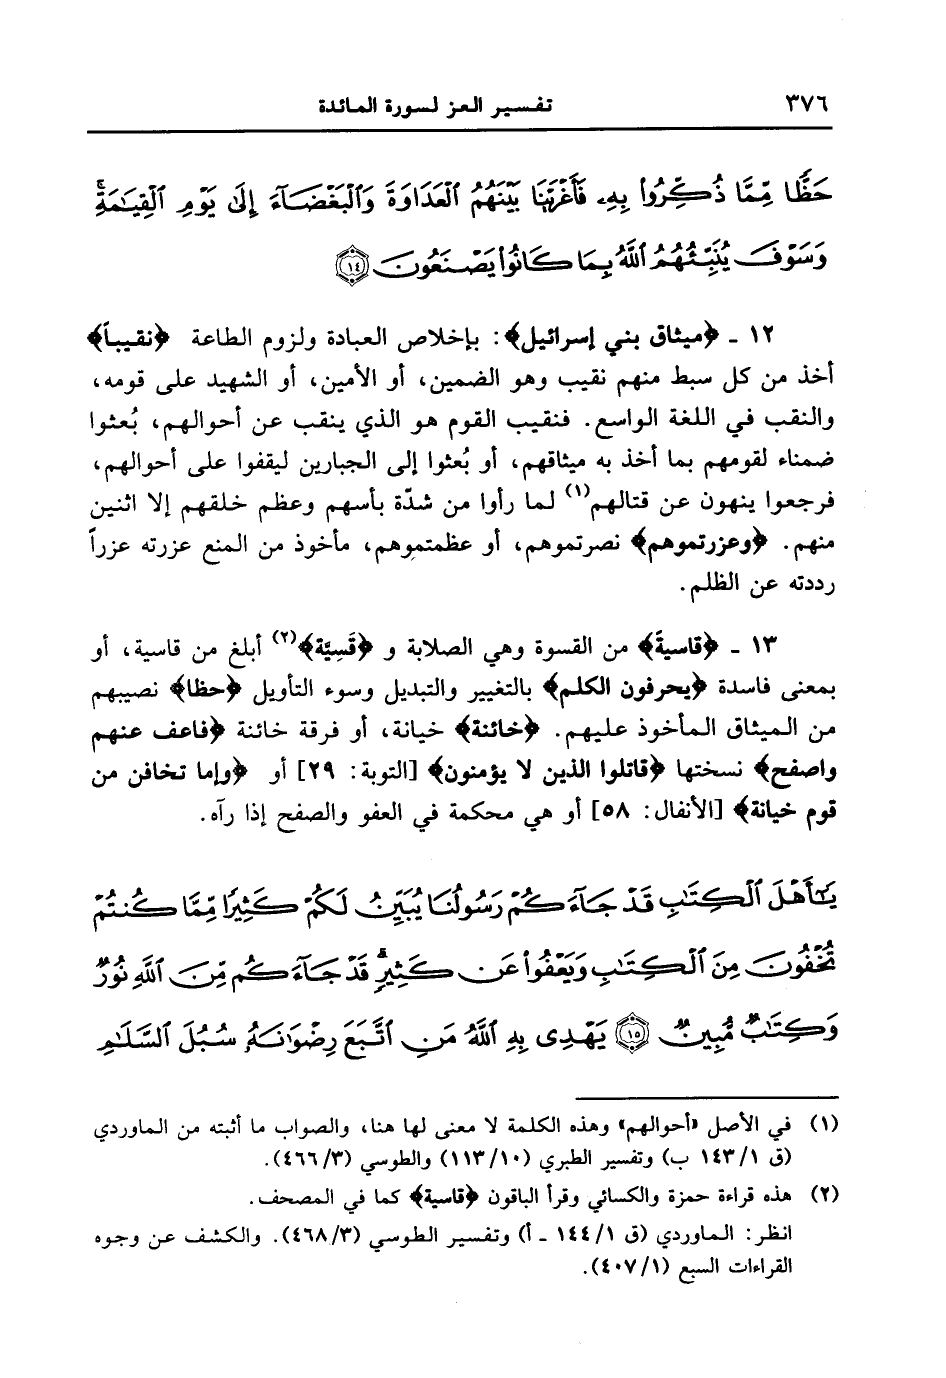 ٣٧٦ تفسير العز لسورة المائدة
حَظًّا مِّمَّا ذُكِّرُوا۟ بِهِۦ فَأَغْرَيْنَا بَيْنَهُمُ ٱلْعَدَاوَةَ وَٱلْبَغْضَآءَ إِلَىٰ يَوْمِ ٱلْقِيَـٰمَةِۚ
وَسَوْفَ يُنَبِّئُهُمُ ٱللَّهُ بِمَا كَانُوا۟ يَصْنَعُونَ ﴿١٤﴾
١٢ ـ ﴿ميثاق بني إسرائيل﴾: بإخلاص العبادة ولزوم الطاعة ﴿نقيباً﴾
أخذ من كل سبط منهم نقيب وهو الضمين، أو الأمين، أو الشهيد على قومه،
والنقب في اللغة الواسع. فنقيب القوم هو الذي ينقب عن أحوالهم، بُعثوا
ضمناء لقومهم بما أخذ به ميثاقهم، أو بُعثوا إلى الجبارين ليقفوا على أحوالهم،
فرجعوا ينهون عن قتالهم(١) لما رأوا من شدّة بأسهم وعظم خلقهم إلا اثنين
منهم. ﴿وعزرتموهم﴾ نصرتموهم، أو عظمتموهم، مأخوذ من المنع عزرته عزراً
رددته عن الظلم.
١٣ ـ ﴿قاسيةً﴾ من القسوة وهي الصلابة و ﴿قَسِيَّة﴾(٢) أبلغ من قاسية، أو
بمعنى فاسدة ﴿يحرفون الكلم﴾ بالتغيير والتبديل وسوء التأويل ﴿حظا﴾ نصيبهم
من الميثاق المأخوذ عليهم. ﴿خائنة﴾ خيانة، أو فرقة خائنة ﴿فاعف عنهم
واصفح﴾ نسختها ﴿قاتلوا الذين لا يؤمنون﴾ [التوبة: ٢٩] أو ﴿وإما تخافن من
قوم خيانة﴾ [الأنفال: ٥٨] أو هي محكمة في العفو والصفح إذا رآه.
يَـٰٓأَهْلَ ٱلْكِتَـٰبِ قَدْ جَآءَكُمْ رَسُولُنَا يُبَيِّنُ لَكُمْ كَثِيرًا مِّمَّا كُنتُمْ
تُخْفُونَ مِنَ ٱلْكِتَـٰبِ وَيَعْفُوا۟ عَن كَثِيرٍۚ قَدْ جَآءَكُم مِّنَ ٱللَّهِ نُورٌ
وَكِتَـٰبٌ مُّبِينٌ ﴿١٥﴾ يَهْدِى بِهِ ٱللَّهُ مَنِ ٱتَّبَعَ رِضْوَٰنَهُۥ سُبُلَ ٱلسَّلَـٰمِ
(١) في الأصل «أحوالهم» وهذه الكلمة لا معنى لها هنا، والصواب ما أثبته من الماوردي
(ق ١٤٣/١ ب) وتفسير الطبري (١١٣/١٠) والطوسي (٤٦٦/٣).
(٢) هذه قراءة حمزة والكسائي وقرأ الباقون ﴿قاسية﴾ كما في المصحف.
انظر: الماوردي (ق ١٤٤/١ ـ أ) وتفسير الطوسي (٤٦٨/٣). والكشف عن وجوه
القراءات السبع (٤٠٧/١).